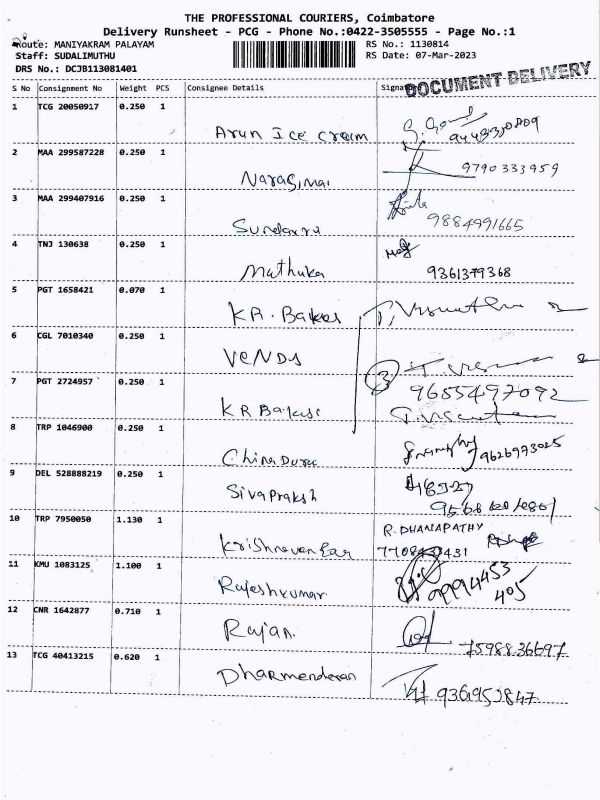 THE PROFESSIONAL COURIERS, Coimbatore
Delivery Runsheet - PCG - Phone No.:0422-3505555 - Page No.:1
Route: MANIYAKRAM PALAYAM RS No.: 1130814
Staff: SUDALIMUTHU RS Date: 07-Mar-2023
DRS No.: DCJB113081401
DOCUMENT DELIVERY
S No Consignment No Weight PCS Consignee Details Signature
1 TCG 20050917 0.250 1
Arun Ice cream
2 MAA 299587228 0.250 1 9790333959
3 MAA 299407916 0.250 1
9884991665
4 TNJ 130638 0.250 1
Mathuka 9361379368
5 PGT 1658421 0.070 1
KR. Bakes
6 CGL 7010340 0.250 1
VENDS
7 PGT 2724957 0.250 1 9655497092
KR Bakes
8 TRP 1046900 0.250 1
China Durai 9626973025
9 DEL 528888219 0.250 1
SivaPraksh
10 TRP 7950050 1.130 1 R. DHANAPATHY
11 KMU 1083125 1.100 1
Rajeshkumar 9994453
405
12 CNR 1642877 0.710 1
Rajan 7598836697
13 TCG 40413215 0.620 1
Dharmenderan